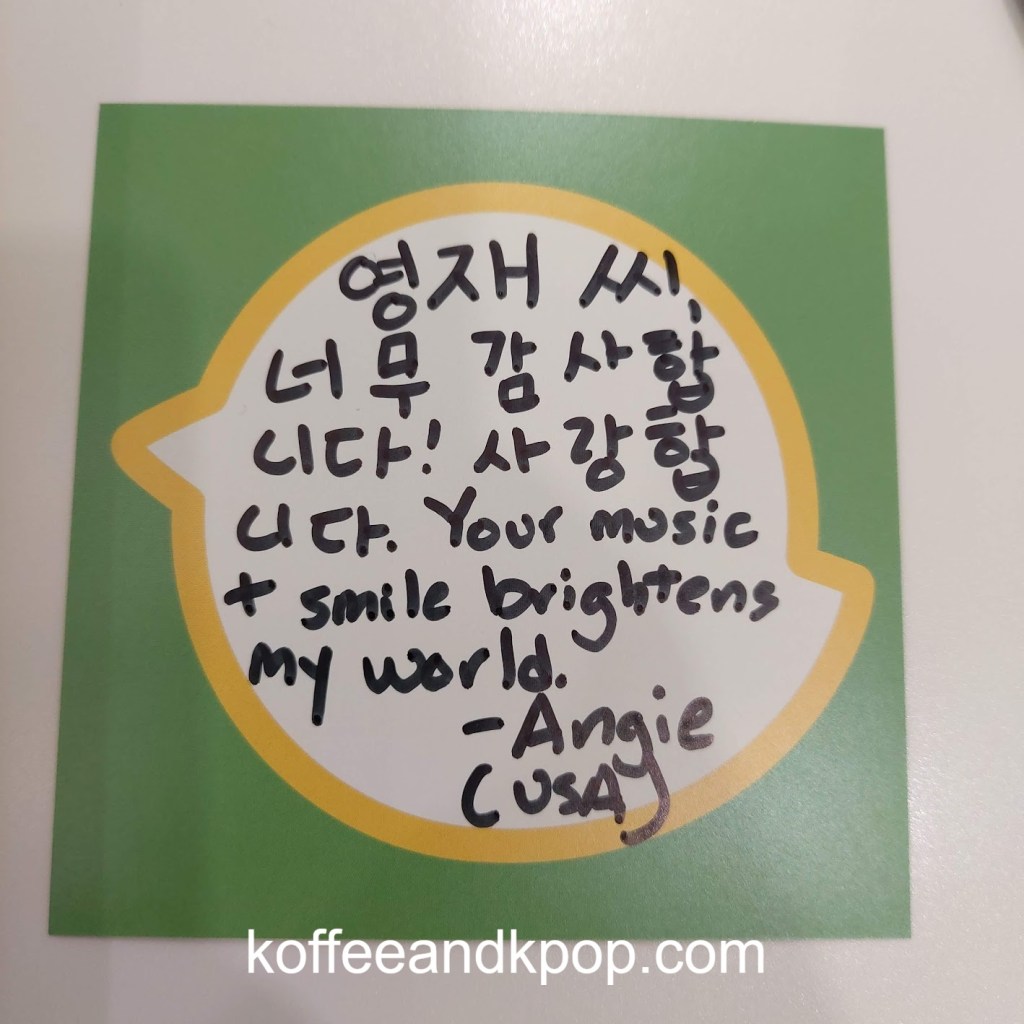 영재 씨,
너무 감사합
니다! 사랑합
니다. Your music
+ smile brightens
my world.
-Angie
(USA)
koffeeandkpop.com